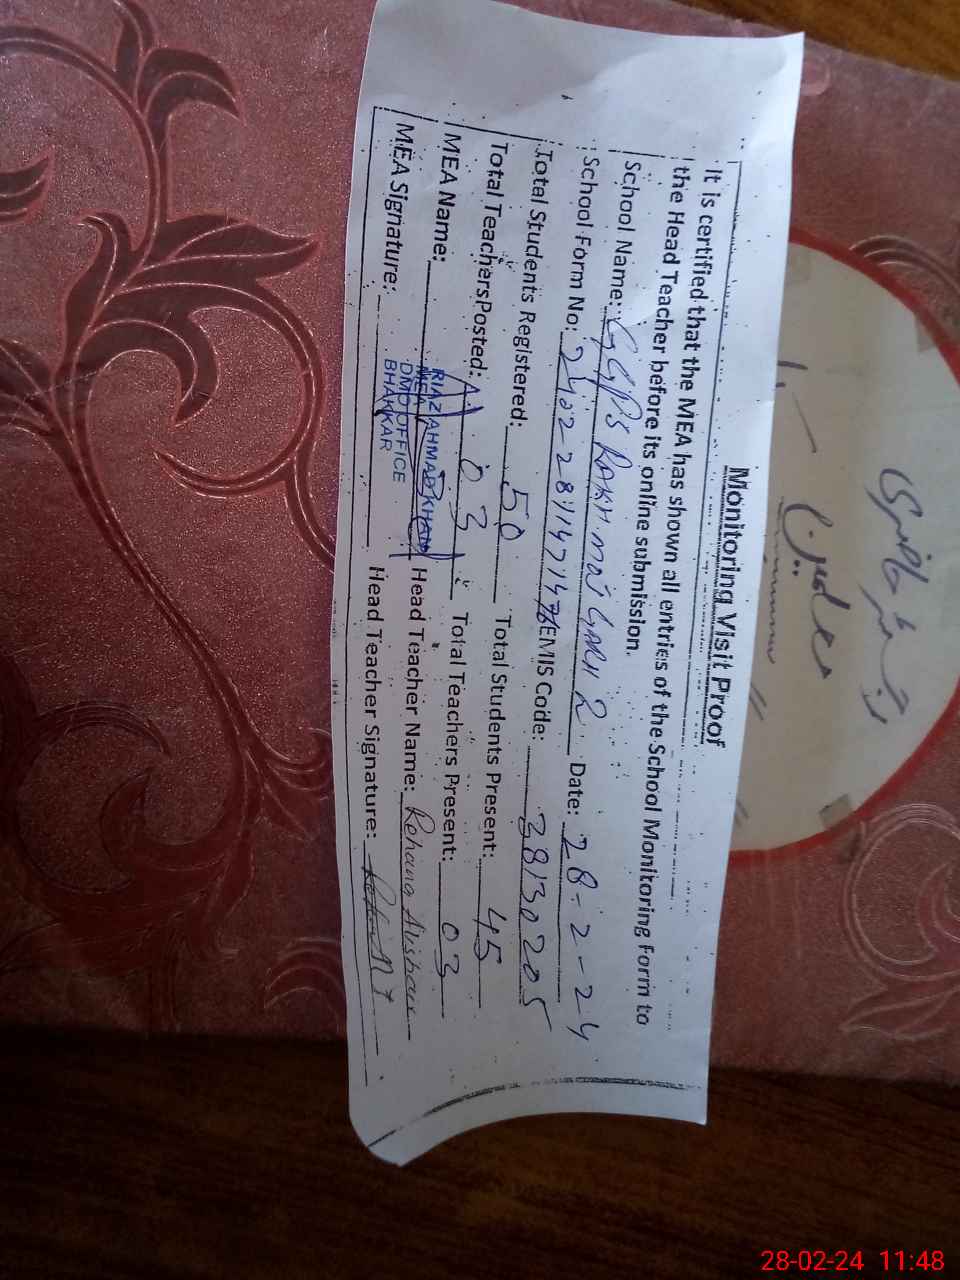 Monitoring Visit Proof
It is certified that the MEA has shown all entries of the School Monitoring Form to
the Head Teacher before its online submission.
School Name: GGPS RAKH MOJ GARH 2 Date: 28-2-24
School Form No: EMIS Code: 38130205
Total Students Registered: 50 Total Students Present: 45
Total Teachers Posted: 03 Total Teachers Present: 03
MEA Name: RIAZ AHMAD KHAN Head Teacher Name: Rehana
MEA
DMO OFFICE
BHAKKAR
MEA Signature: Head Teacher Signature:
28-02-24 11:48